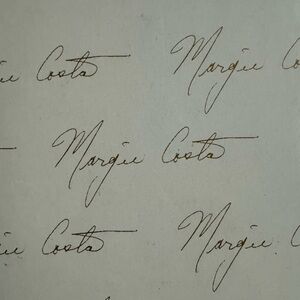 Costa Margie
Margie Costa
Costa Margie